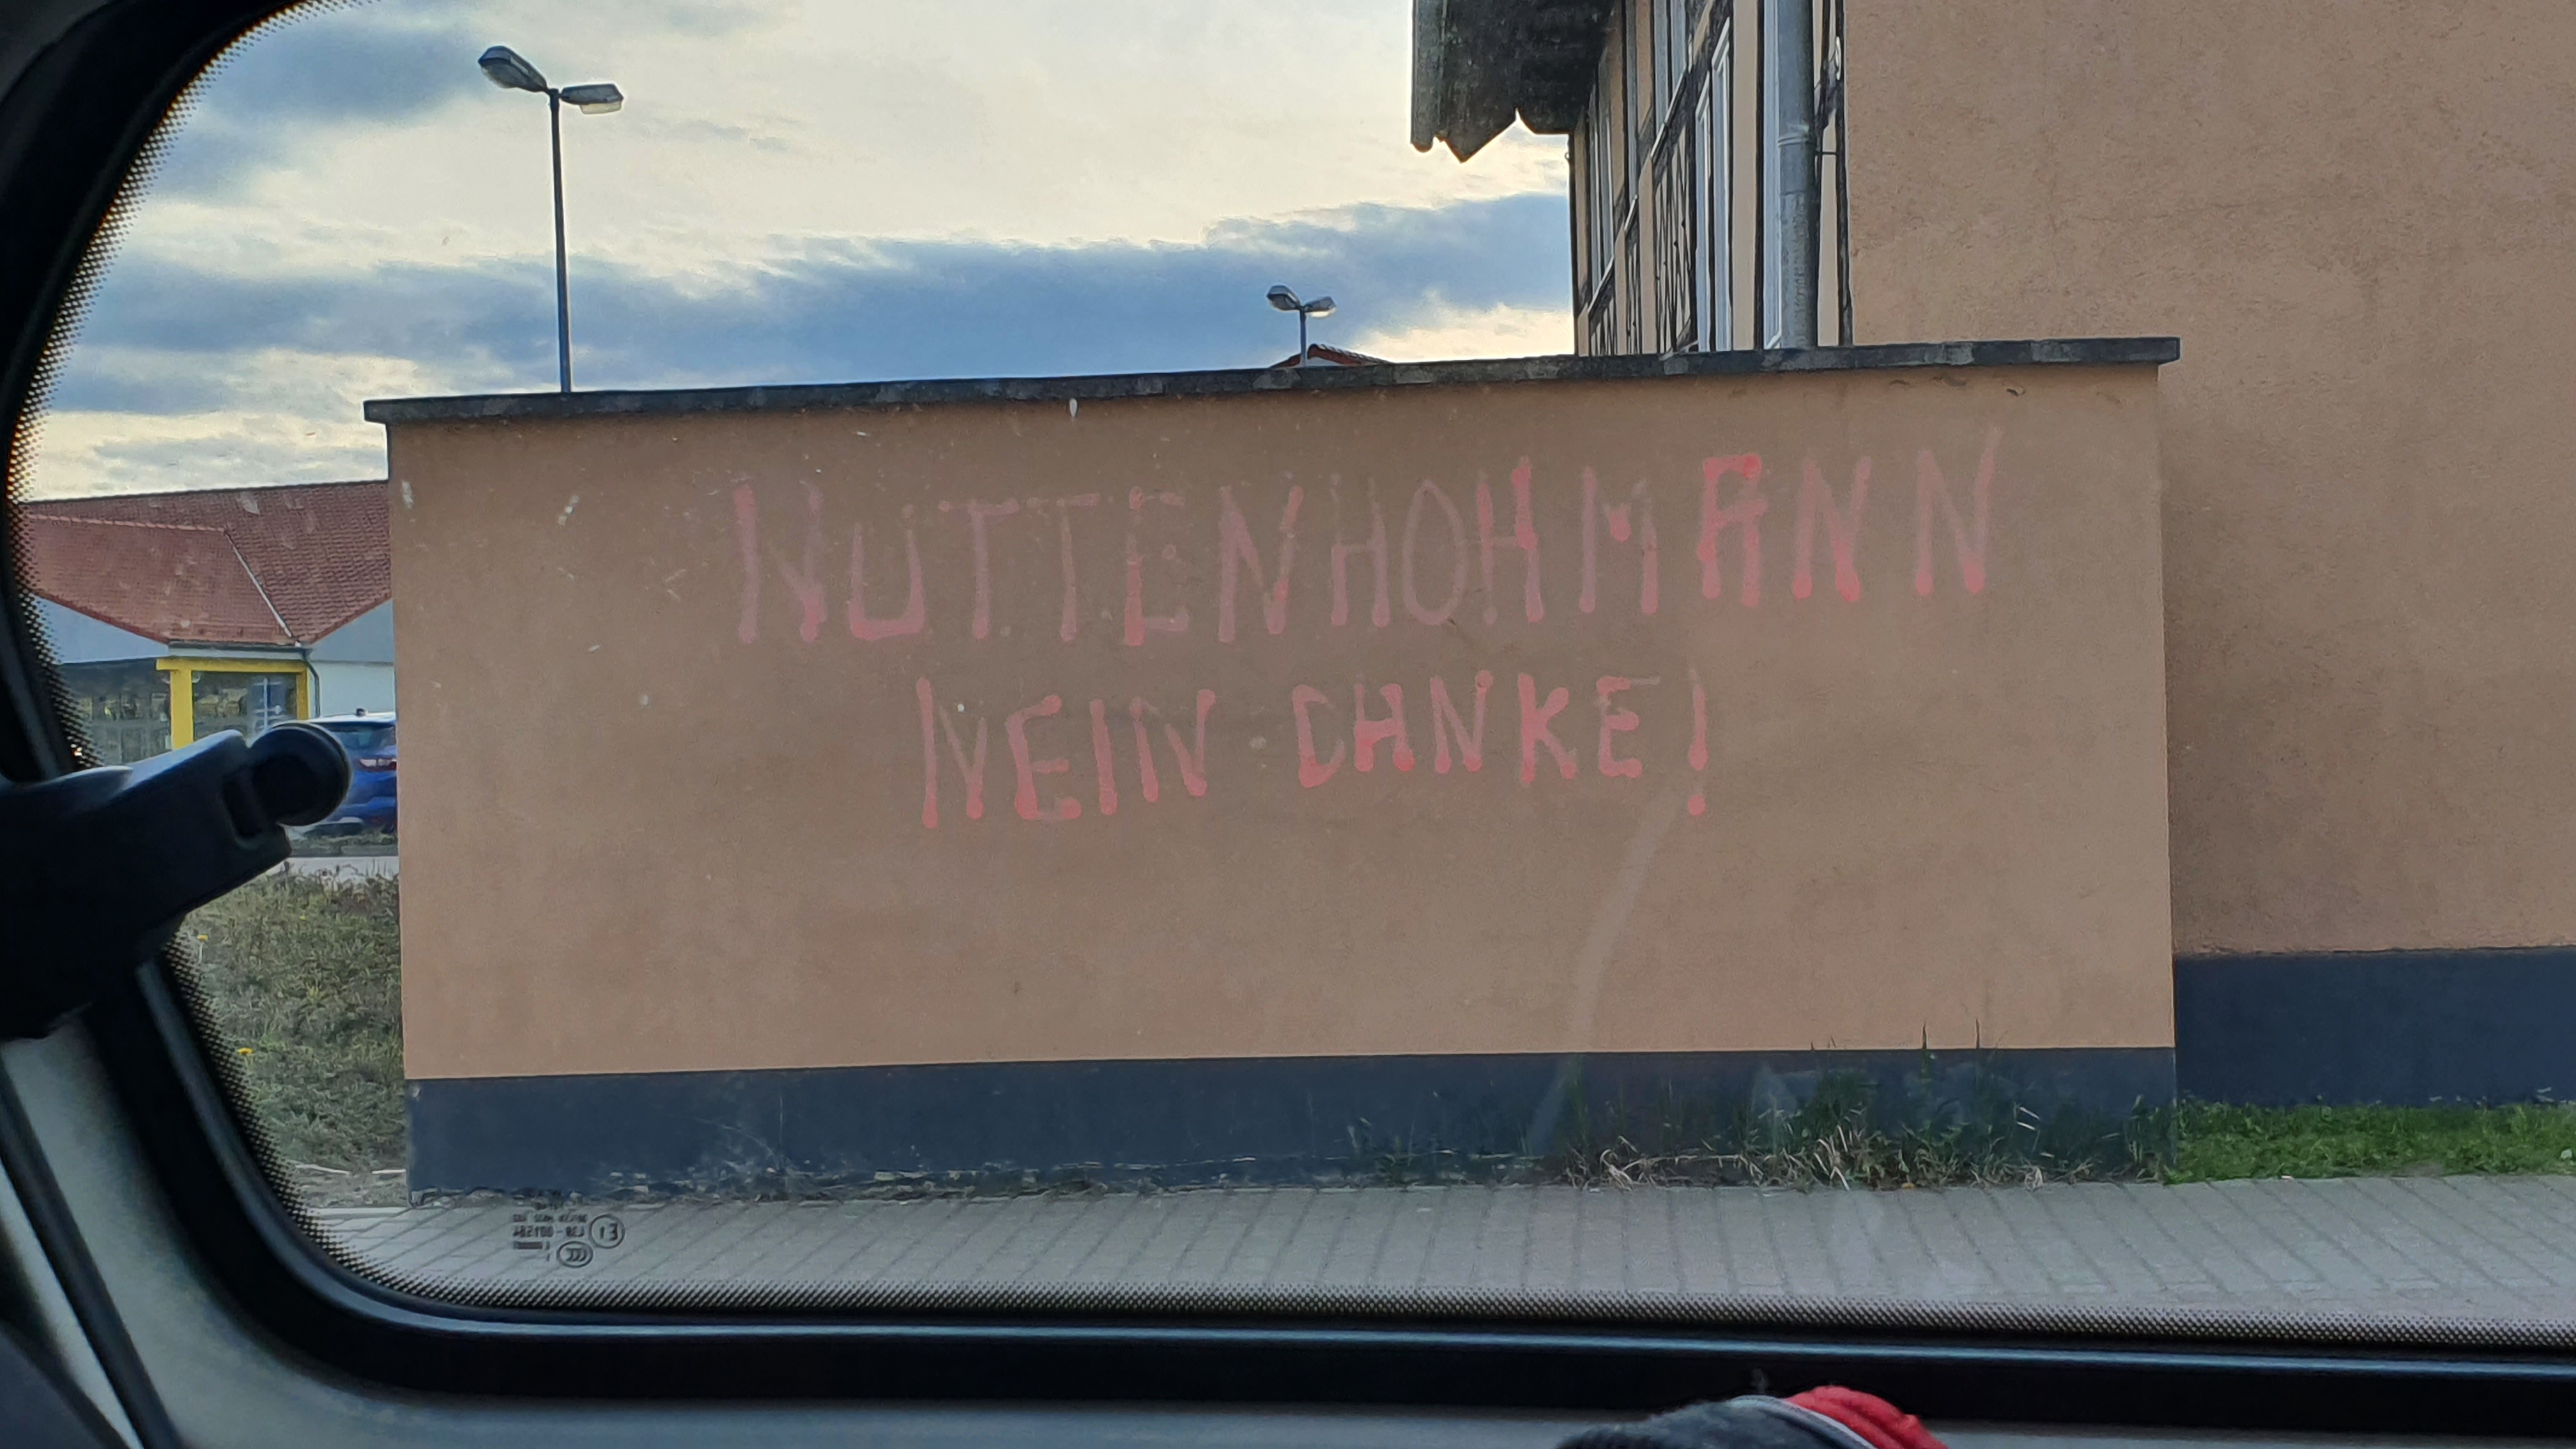 NUTTENHOHMANN
NEIN DANKE!